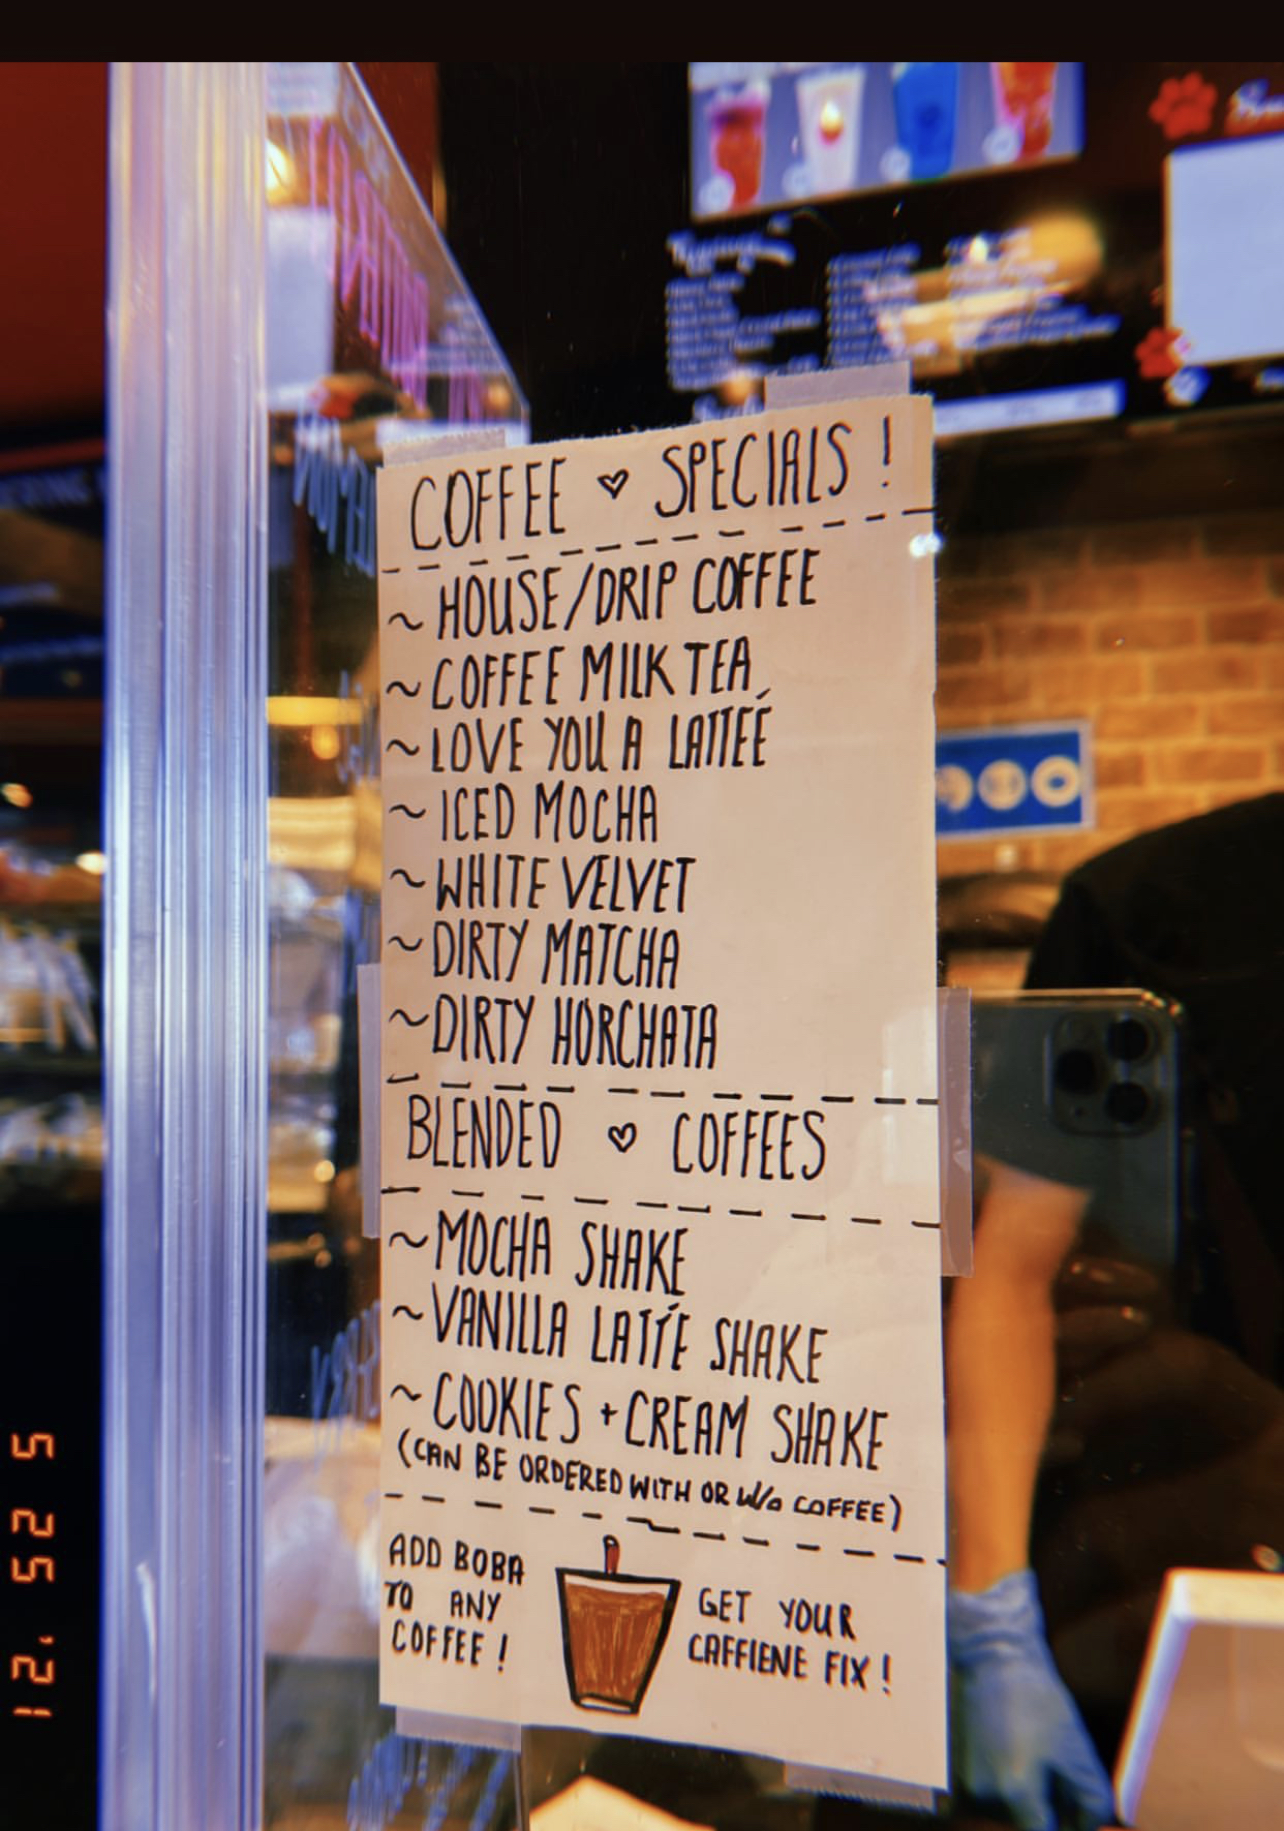 COFFEE ♡ SPECIALS !
~ HOUSE/DRIP COFFEE
~ COFFEE MILK TEA
~ LOVE YOU A LATTÉÉ
~ ICED MOCHA
~ WHITE VELVET
~ DIRTY MATCHA
~ DIRTY HORCHATA
BLENDED ♡ COFFEES
~ MOCHA SHAKE
~ VANILLA LATTÉ SHAKE
~ COOKIES + CREAM SHAKE
(CAN BE ORDERED WITH OR W/o COFFEE)
ADD BOBA
TO ANY
COFFEE !
GET YOUR
CAFFIENE FIX !
12 '25 25 5